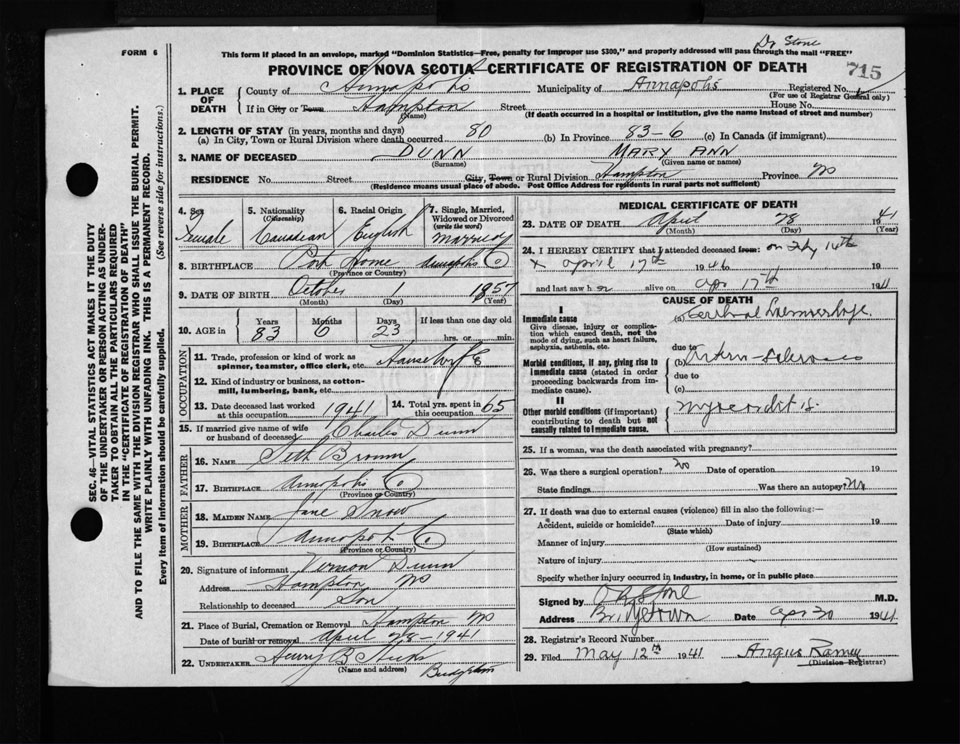 Dr Stone
FORM 6
This form if placed in an envelope, marked "Dominion Statistics—Free, penalty for improper use $300," and properly addressed will pass through the mail "FREE"
PROVINCE OF NOVA SCOTIA—CERTIFICATE OF REGISTRATION OF DEATH
715
1. PLACE OF DEATH
County of Annapolis Municipality of Annapolis Registered No.
(For use of Registrar General only)
If in City or Town Hampton Street House No.
(Name) (If death occurred in a hospital or institution, give the name instead of street and number)
2. LENGTH OF STAY (in years, months and days)
(a) In City, Town or Rural Division where death occurred 80 (b) In Province 83-6 (c) In Canada (if immigrant)
3. NAME OF DECEASED DUNN MARY ANN
(Surname) (Given name or names)
RESIDENCE No. Street City, Town or Rural Division Hampton Province NS
(Residence means usual place of abode. Post Office Address for residents in rural parts not sufficient)
4. Sex Female
5. Nationality (Citizenship) Canadian
6. Racial Origin English
7. Single, Married, Widowed or Divorced (write the word) Married
8. BIRTHPLACE Port Lorne Annapolis Co
(Province or Country)
9. DATE OF BIRTH October 1 1857
(Month) (Day) (Year)
10. AGE in Years Months Days If less than one day old
83 0 23 hrs. or min.
OCCUPATION
11. Trade, profession or kind of work as spinner, teamster, office clerk, etc. Housewife
12. Kind of industry or business, as cotton-mill, lumbering, bank, etc.
13. Date deceased last worked at this occupation 1941 14. Total yrs. spent in this occupation 65
15. If married give name of wife or husband of deceased Charles Dunn
FATHER
16. NAME Seth Brown
17. BIRTHPLACE Annapolis Co
(Province or Country)
MOTHER
18. MAIDEN NAME Jane Snow
19. BIRTHPLACE Annapolis Co
(Province or Country)
20. Signature of informant Vernon Dunn
Address Hampton NS
Relationship to deceased Son
21. Place of Burial, Cremation or Removal Hampton NS
Date of burial or removal April 28-1941
22. UNDERTAKER Henry B Hicks
(Name and address) Bridgetown
MEDICAL CERTIFICATE OF DEATH
23. DATE OF DEATH April 1941
(Month) (Day) (Year)
24. I HEREBY CERTIFY that I attended deceased from: on Feby 14th
& April 17th 19 19
and last saw her alive on Apr 17th 1941
CAUSE OF DEATH
I
Immediate cause
Give disease, injury or complication which caused death, not the mode of dying, such as heart failure, asphyxia, asthenia, etc.
(a) Cerebral Haemorrhage
due to
Morbid conditions, if any, giving rise to immediate cause (stated in order proceeding backwards from immediate cause).
(b) Arterio-sclerosis
due to
(c)
II
Other morbid conditions (if important) contributing to death but not causally related to immediate cause.
Myocarditis.
25. If a woman, was the death associated with pregnancy?
26. Was there a surgical operation? No Date of operation 19
State findings Was there an autopsy? No
27. If death was due to external causes (violence) fill in also the following:—
Accident, suicide or homicide? Date of injury 19
(State which)
Manner of injury
(How sustained)
Nature of injury
Specify whether injury occurred in industry, in home, or in public place
Signed by Stone M.D.
Address Bridgetown Date Apr 30 1941
28. Registrar's Record Number
29. Filed May 12th 1941 Angus Ramey
(Division Registrar)
SEC. 46—VITAL STATISTICS ACT MAKES IT THE DUTY
OF THE UNDERTAKER OR PERSON ACTING AS UNDER-
TAKER TO OBTAIN ALL THE PARTICULARS REQUIRED
IN THE "CERTIFICATE OF REGISTRATION OF DEATH"
AND TO FILE THE SAME WITH THE DIVISION REGISTRAR WHO SHALL ISSUE THE BURIAL PERMIT.
WRITE PLAINLY WITH UNFADING INK. THIS IS A PERMANENT RECORD.
Every item of information should be carefully supplied. (See reverse side for instructions.)